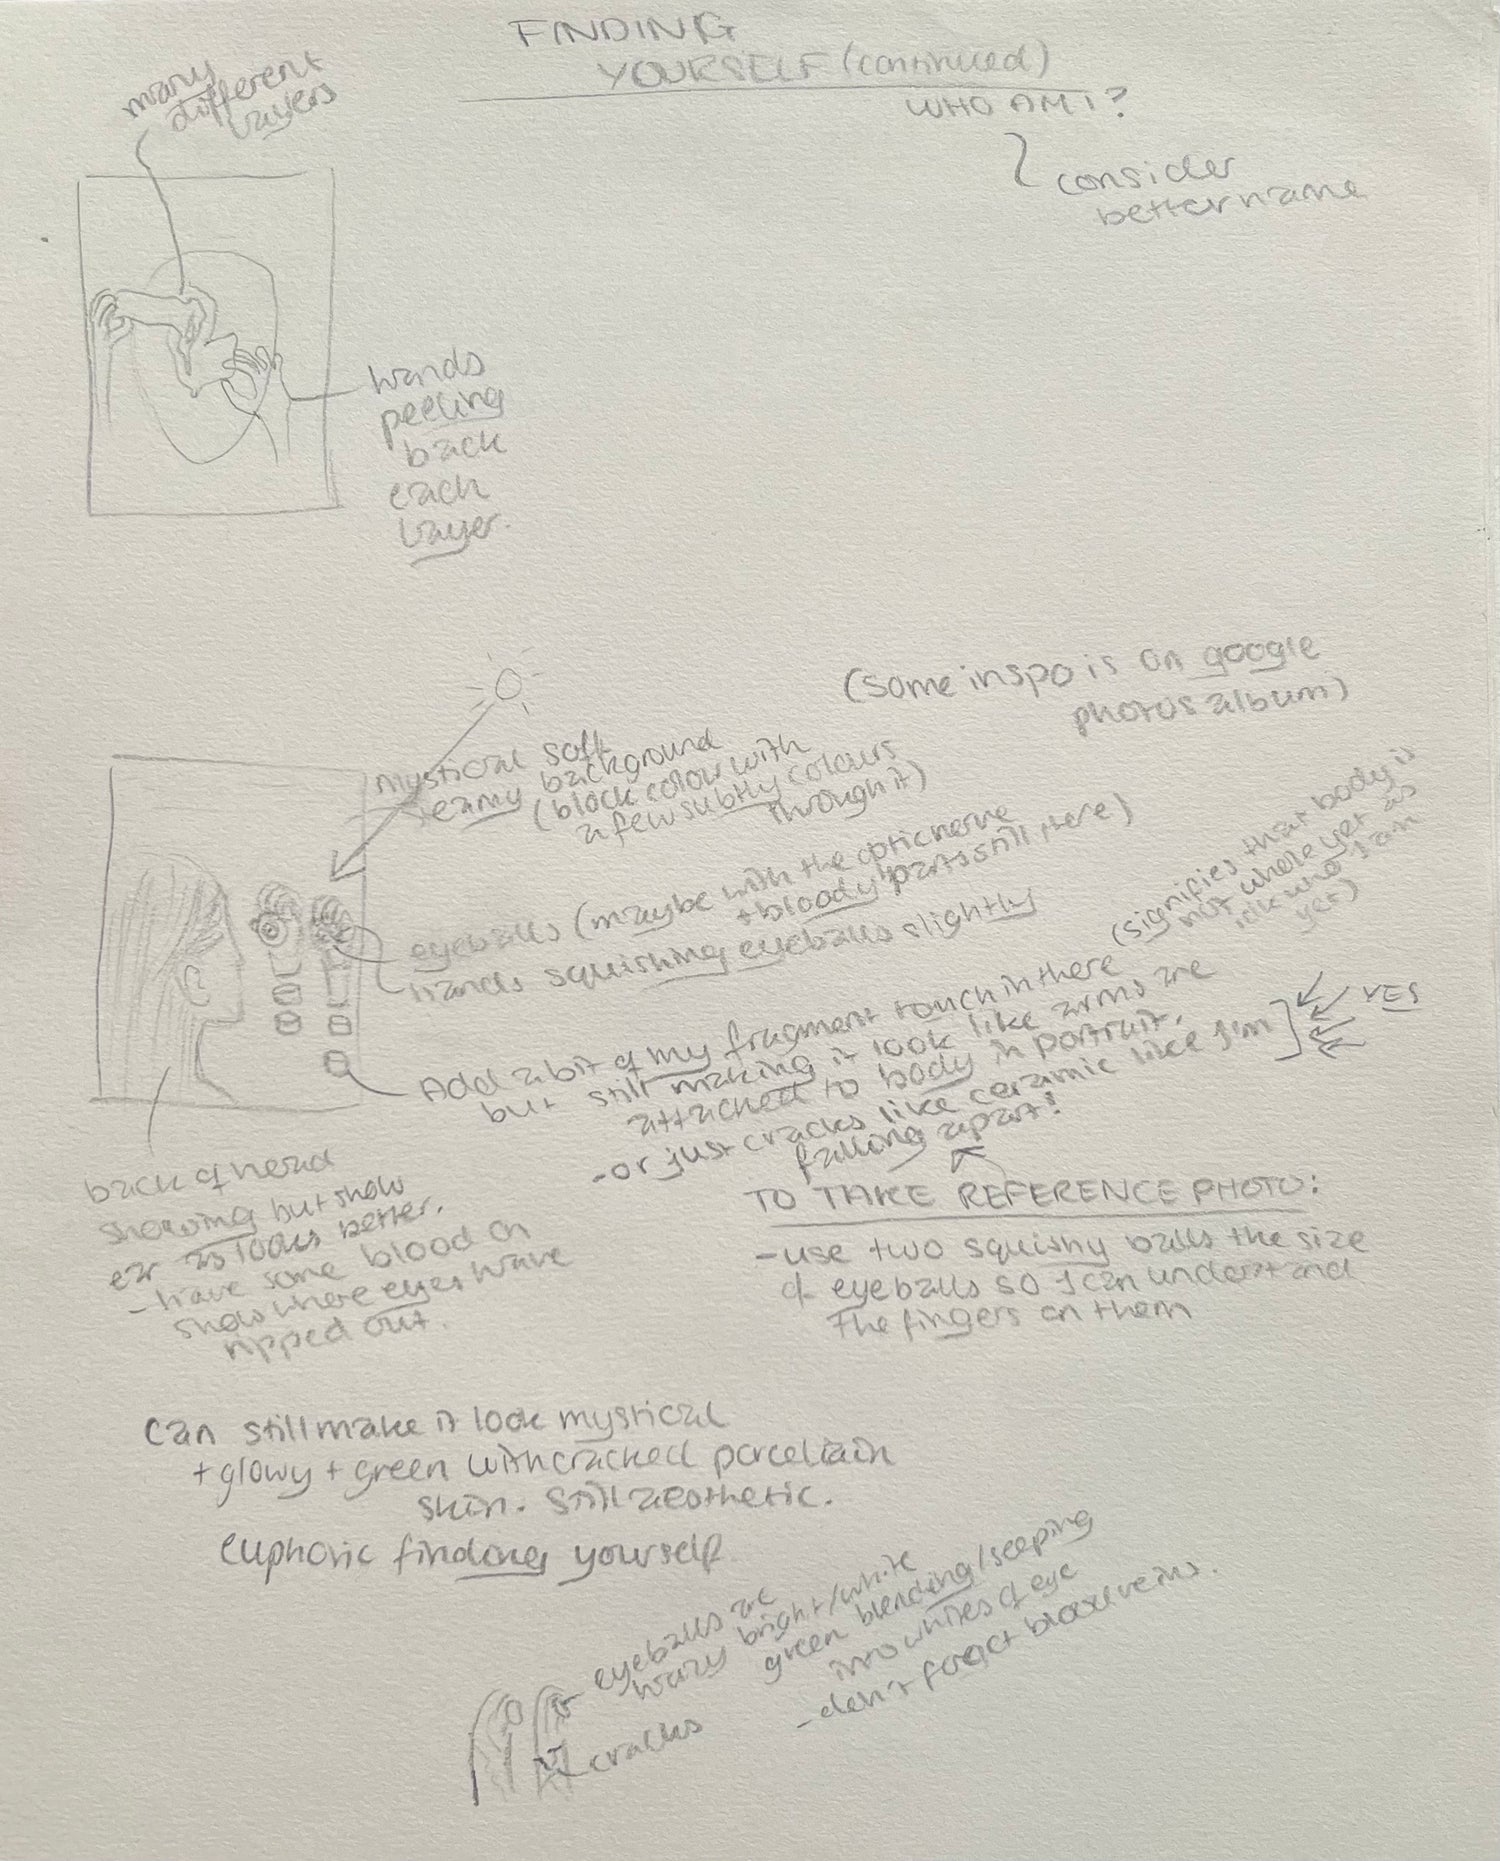 FINDING
YOURSELF (continued)
WHO AM I?
consider
better name
many
different
layers
hands
peeling
back
each
layer.
(some inspo is on google
photos album)
mystical soft
background
(block colour with
a few subtly colours
through it)
eyeballs (maybe with the optic nerve
+ bloody parts still there)
hands squishing eyeballs slightly
(signifies that body is
not whole yet as
idk who I am
yet)
Add a bit of my fragment touch in there
but still making it look like arms are
attached to body in portrait.
- or just cracks like ceramic like I'm
falling apart!
YES
back of head
showing but show
ear as looks better.
- have some blood on
show where eyes have
ripped out.
TO TAKE REFERENCE PHOTO:
- use two squishy balls the size
of eyeballs so I can understand
the fingers on them
can still make it look mystical
+ glowy + green with cracked porcelain
skin. Still aesthetic.
euphoric finding yourself
eyeballs are
hazy bright/white
green blending/seeping
into whites of eye
- don't forget blood veins.
cracks